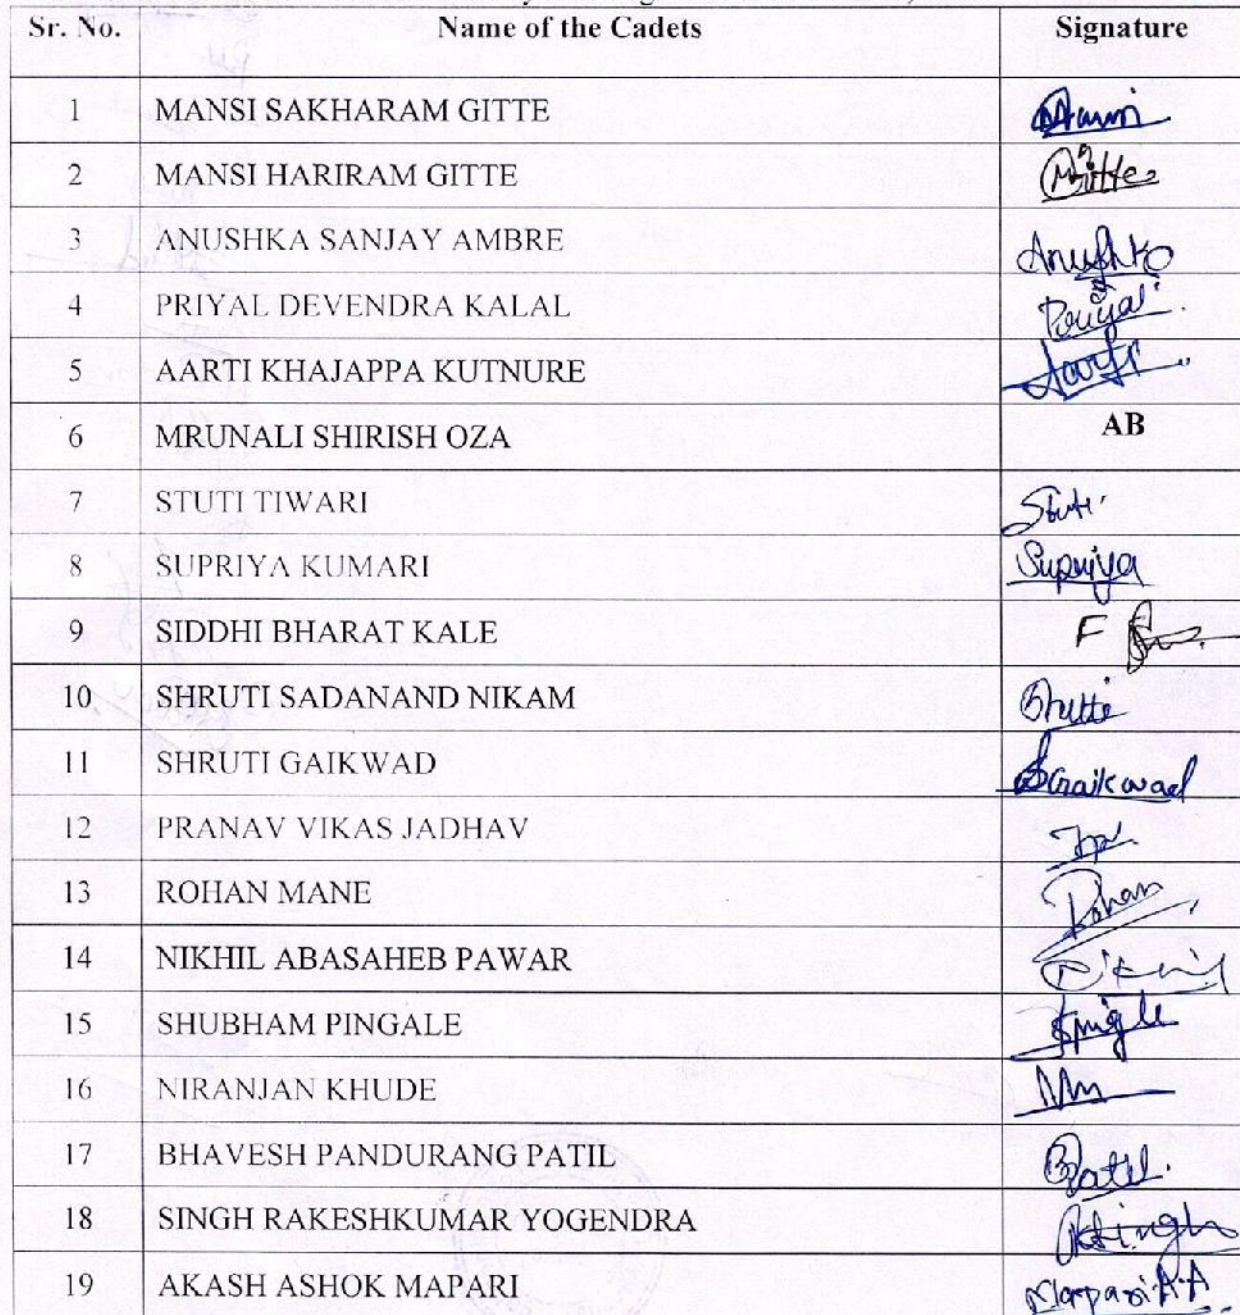 Sr. No. Name of the Cadets Signature
1 MANSI SAKHARAM GITTE
2 MANSI HARIRAM GITTE Gitte
3 ANUSHKA SANJAY AMBRE Anushka
4 PRIYAL DEVENDRA KALAL Priyal
5 AARTI KHAJAPPA KUTNURE Aarti
6 MRUNALI SHIRISH OZA AB
7 STUTI TIWARI Stuti
8 SUPRIYA KUMARI Supriya
9 SIDDHI BHARAT KALE F
10 SHRUTI SADANAND NIKAM
11 SHRUTI GAIKWAD SGaikwad
12 PRANAV VIKAS JADHAV
13 ROHAN MANE Rohan
14 NIKHIL ABASAHEB PAWAR Nikhil
15 SHUBHAM PINGALE
16 NIRANJAN KHUDE
17 BHAVESH PANDURANG PATIL BPatil
18 SINGH RAKESHKUMAR YOGENDRA
19 AKASH ASHOK MAPARI Mapari A.A